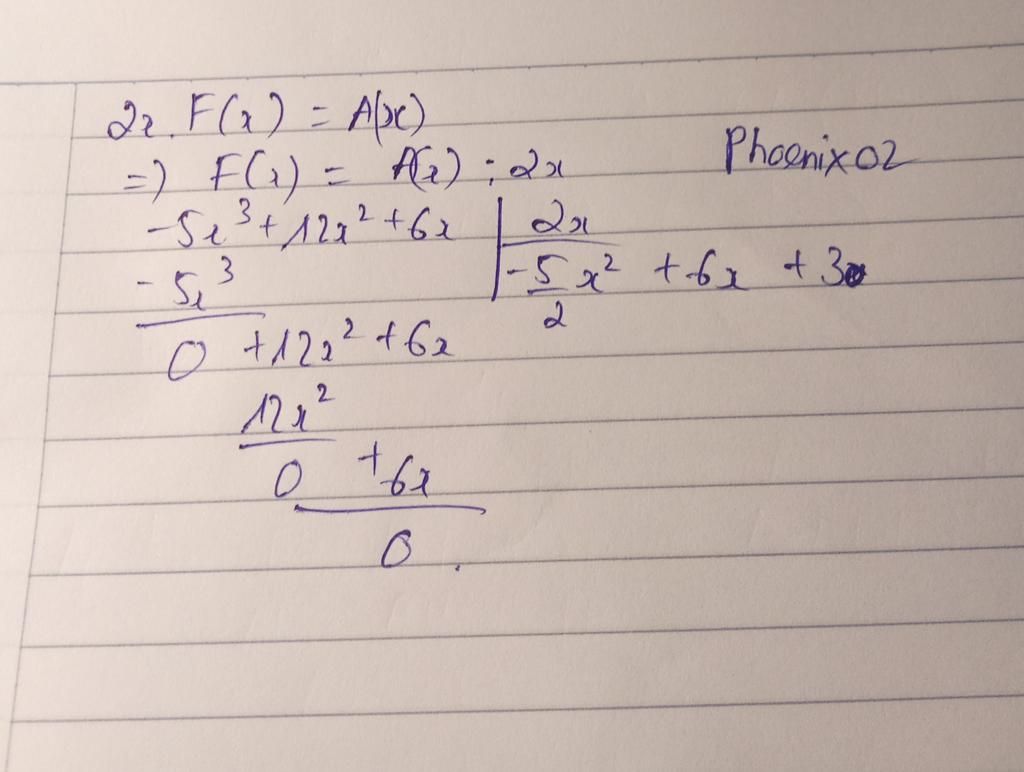 2x. F(x) = A(x)
=) F(x) = A(x) : 2x
Phoenix02
-5x³ + 12x² + 6x | 2x
-5x³ | -5/2 x² + 6x + 3
0 + 12x² + 6x
12x²
0 + 6x
0.